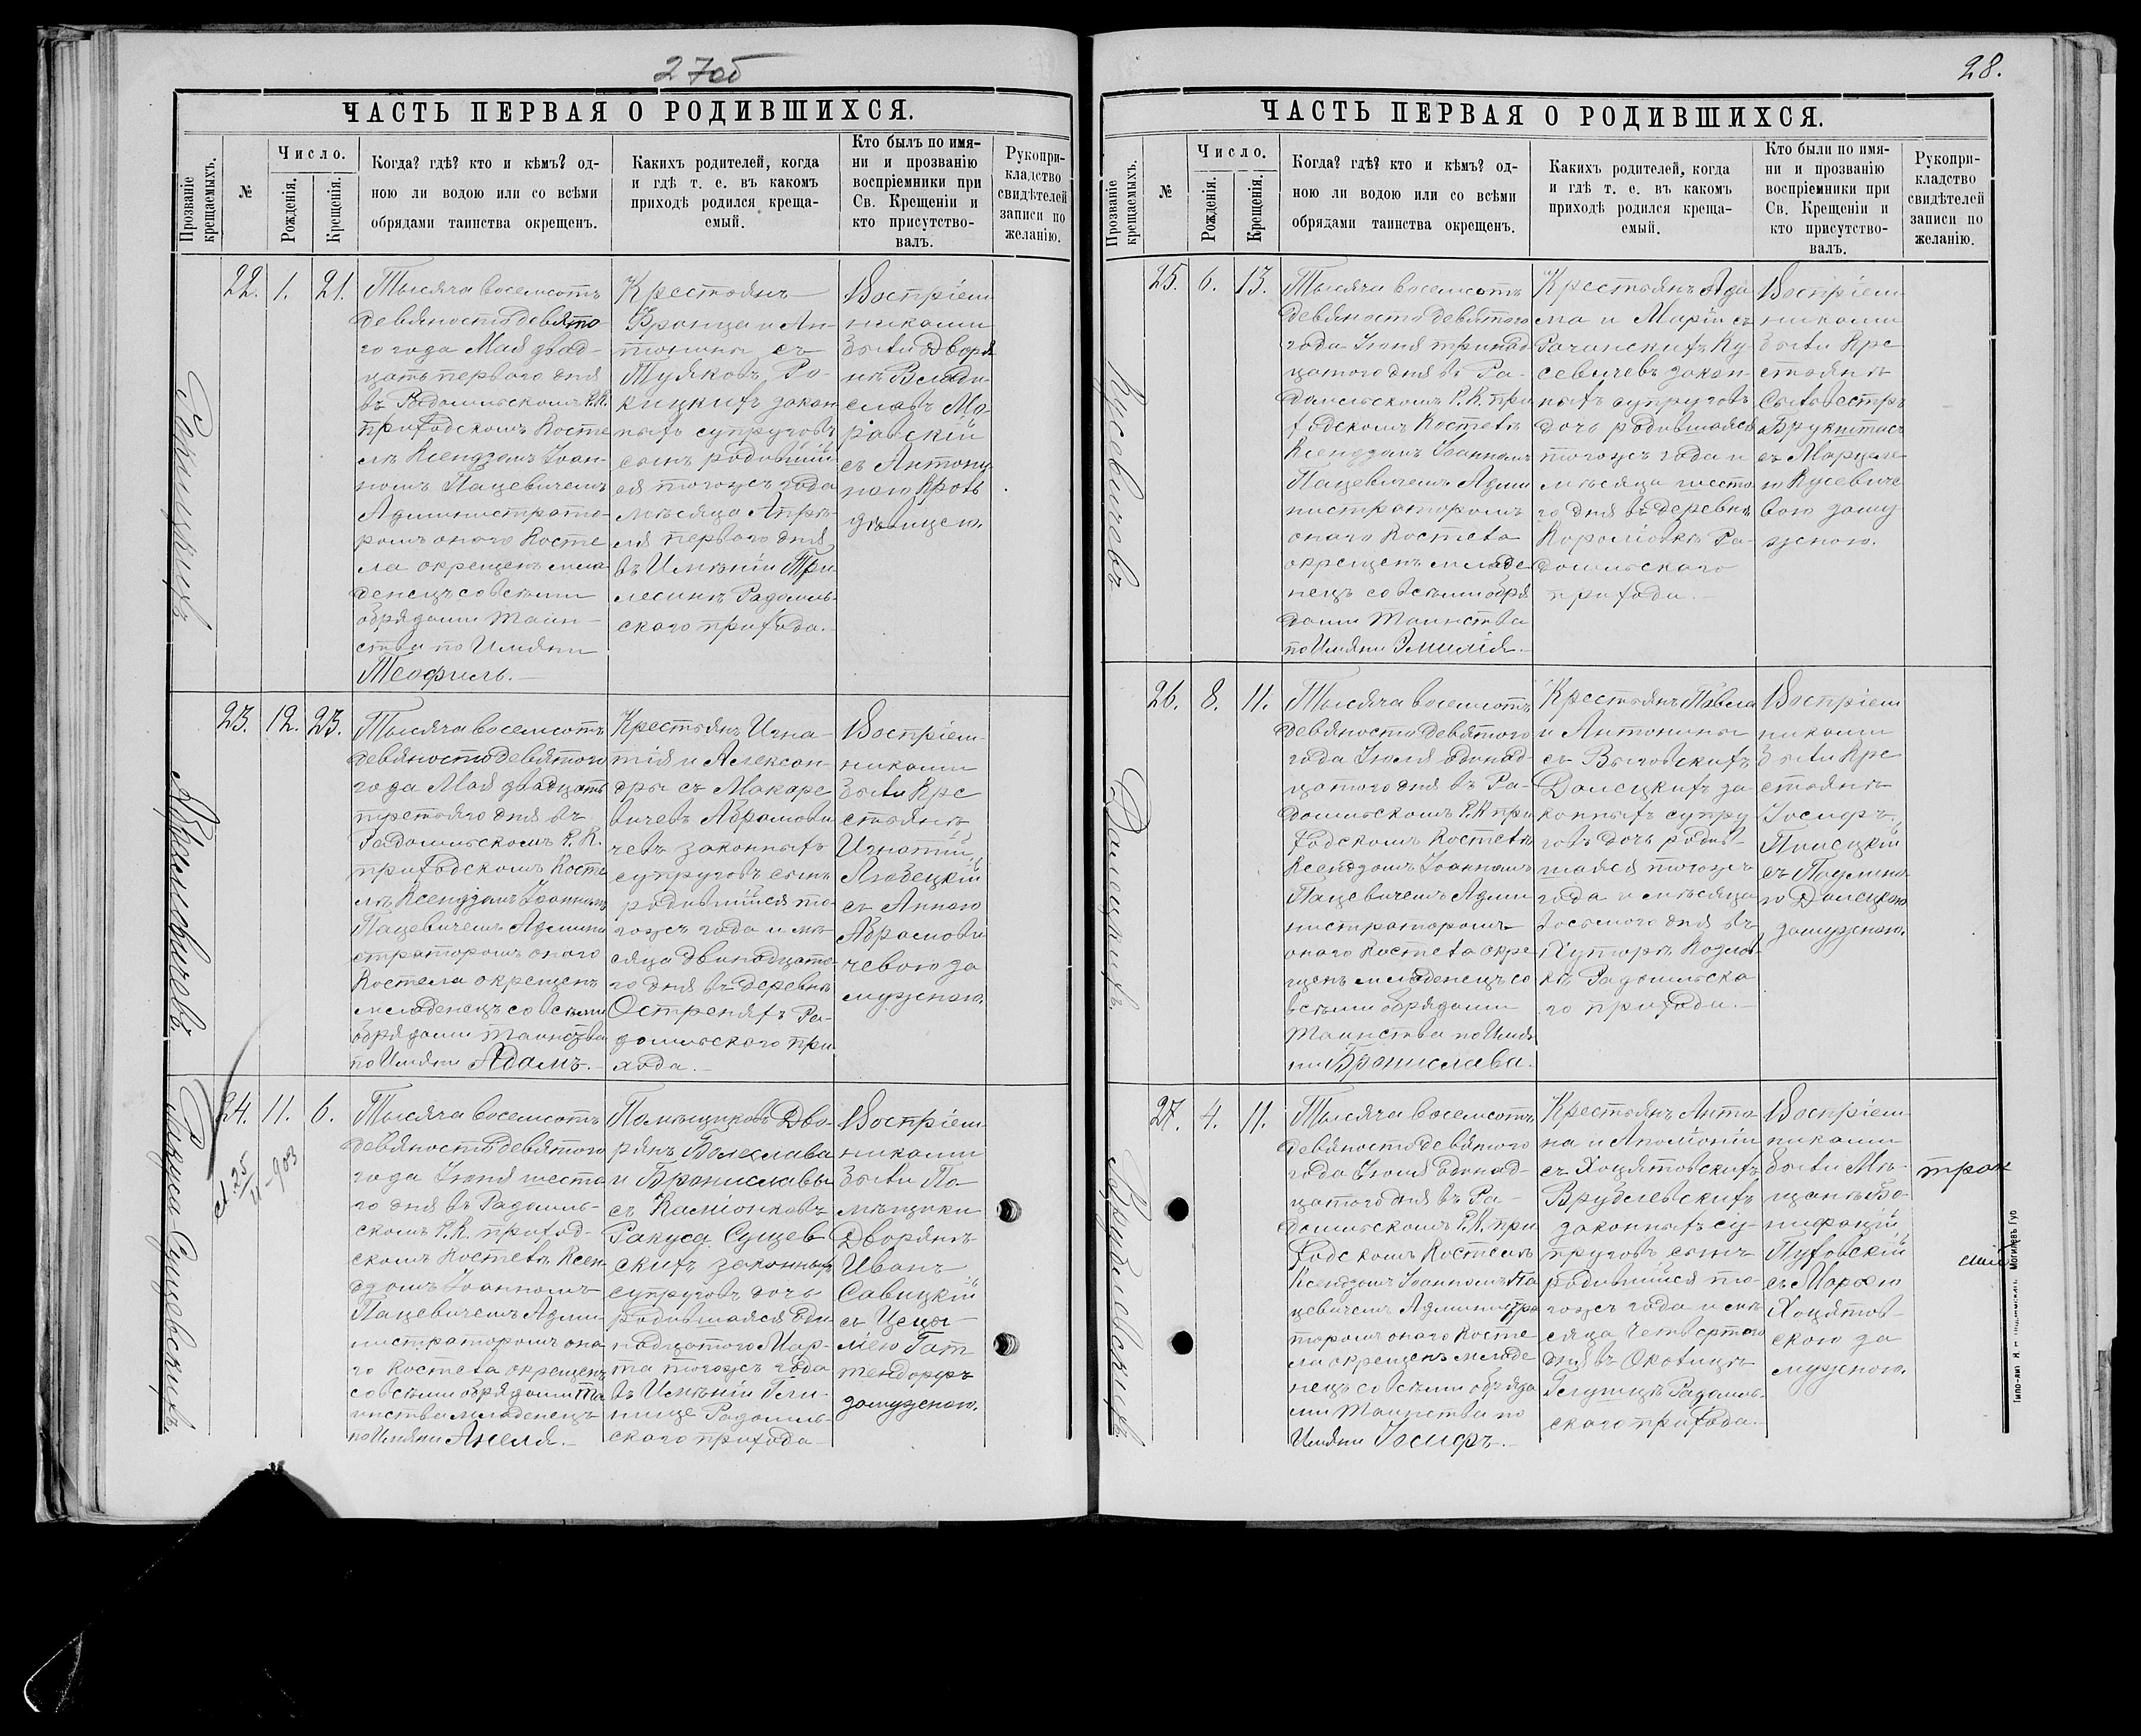 27об
ЧАСТЬ ПЕРВАЯ О РОДИВШИХСЯ.
Прозваніе крещаемыхъ.
№
Число.
Рожденія.
Крещенія.
Когда? гдѣ? кто и кѣмъ? од-
ною ли водою или со всѣми
обрядами таинства окрещенъ.
Какихъ родителей, когда
и гдѣ т. е. въ какомъ
приходѣ родился креща-
емый.
Кто былъ по имя-
ни и прозванію
воспріемники при
Св. Крещеніи и
кто присутство-
валъ.
Рукопри-
кладство
свидѣтелей
записи по
желанію.
22.
1.
21.
Тысяча восемсотъ
девяносто девято-
го года Мая двад-
цать перваго дня
въ Радомльскомъ Р.К.
приходскомъ Косте
лѣ Ксендзомъ Іоан-
номъ Пацевичемъ
Администрато-
ромъ онаго Косте
ла окрещенъ мла-
денецъ со всѣми
обрядами Таин-
ства по Имяни
Теофиль.
Крестьянъ
Франца и Ан-
тонины съ
Туяковъ Ро-
кицкихъ закон
ныхъ супруговъ
сынъ родивший
ся тогожъ года
мѣсяца Апрѣ-
ля перваго дня
въ Имѣніи Три
лесинѣ Радомль-
скаго прихода.
Воспріем
никами
были Дворя
нѣ Влади-
славъ Мо-
равскій
съ Антони
ною Кровь
дѣвицею.
Абрамовичевъ
23.
12.
23.
Тысяча восемсотъ
девяносто девятого
года Мая двадцать
третьяго дня въ
Радомльскомъ Р. К.
приходскомъ Косте
лѣ Ксендзомъ Іоанномъ
Пацевичемъ Админи
страторомъ онаго
Костела окрещенъ
младенецъ со всѣми
обрядами Таинства
по Имяни Адамъ.
Крестьянъ Игна-
тія и Алексан-
дры съ Макаре
вичевъ Абрамови
чевъ законныхъ
супруговъ сынъ
родившийся то-
гожъ года и мѣ-
сяца двенадцато-
го дня въ деревнѣ
Острепяхъ Ра-
домльскаго при
хода.
Воспріем-
никами
были Кре
стьянѣ
Игнатій
Любецкій
съ Анною
Абрамови
чевою за
мужною.
Ракуса-Сущевскихъ
24.
11.
6.
Тысяча восемсотъ
девяносто девятого
года Іюня шеста
го дня въ Радомль-
скомъ Р.К. приход-
скомъ Костелѣ Ксен
дзомъ Іоанномъ
Пацевичемъ Адми
нистраторомъ она
го Костела окрещенъ
со всѣми обрядами Та
инства младенецъ
по Имяни Анеля.
Помѣщиковъ Дво-
рянъ Болеслава
и Брониславы
съ Каміонковъ
Ракуса Сущев
скихъ законныхъ
супруговъ дочь
родившаяся Еди
надцатого Мар-
та тогожъ года
въ Имѣніи
Радомль-
скаго прихода
Воспріем
никами
были По-
мѣщики
Дворянѣ
Иванъ
Савицкій
съ Цеци-
ліею Гат
тендорфъ
замужною.
28.
ЧАСТЬ ПЕРВАЯ О РОДИВШИХСЯ.
Прозваніе крещаемыхъ.
№
Число.
Рожденія.
Крещенія.
Когда? гдѣ? кто и кѣмъ? од-
ною ли водою или со всѣми
обрядами таинства окрещенъ.
Какихъ родителей, когда
и гдѣ т. е. въ какомъ
приходѣ родился креща-
емый.
Кто были по имя-
ни и прозванію
воспріемники при
Св. Крещеніи и
кто присутство-
валъ.
Рукопри-
кладство
свидѣтелей
записи по
желанію.
Кусевичевъ
25.
6.
13.
Тысяча восемсотъ
девяносто девятого
года Іюня тринад
цатого дня въ Ра-
домльскомъ Р.К. при
ходскомъ Костелѣ
Ксендзомъ Іоанномъ
Пацевичемъ Адми
нистраторомъ
онаго Костела
окрещенъ младе
нецъ со всѣми обря
дами Таинства
по Имяни Эмилія.
Крестьянъ Ада
ма и Маріи съ
Рачанскихъ Ку-
севичевъ закон-
ныхъ супруговъ
дочь родившаяся
тогожъ года и
мѣсяца шесто
го дня въ деревнѣ
Королiовкѣ Ра-
домльскаго
прихода.
Воспріем
никами
были Кре
стьянѣ
Сильвестръ
съ Марцеле
ю Кусевиче
вою заму
жною.
Далецкихъ
26.
8.
11.
Тысяча восемсотъ
девяносто девятого
года Іюля Единад-
цатого дня въ Ра-
домльскомъ Р.К. при
ходскомъ Костелѣ
Ксендзомъ Іоанномъ
Пацевичемъ Адми
нистраторомъ
онаго Костела окре
щенъ младенецъ со
всѣми обрядами
Таинства по Имя
ни Бранислава.
Крестьянъ Павла
и Антонины
съ Выговскихъ
Далецкихъ за-
конныхъ супру
говъ дочь родив-
шаяся тогожъ
года и мѣсяца
восьмого дня въ
Хуторѣ Козлов
кѣ Радомльска
го прихода.
Воспріем
никами
были Кре
стьянѣ
Іосифъ
Плисцкій
съ Паулино-
ю Далецкою
замужною.
Врублевскихъ
27.
4.
11.
Тысяча восемсотъ
девяносто девятого
года Іюля Единад-
цатого дня въ Ра-
домльскомъ Р.К. при
ходскомъ Костелѣ
Ксендзомъ Іоанномъ Па
цевичемъ Администра
торомъ онаго Косте
ла окрещенъ младе
нецъ со всѣми обряда
ми Таинства по
Имяни Іосифъ.
Крестьянъ Анто
на и Аполіоніи
съ Хоцятовскихъ
Врублевскихъ
законныхъ су-
пруговъ сынъ
родившийся то-
гожъ года и мѣ
сяца четвертого
дня въ Околицѣ
Радомль-
скаго прихода.
Воспріем
никами
были Мѣ-
щанѣ Бо-
нифацій
Пуховскій
съ Марьею
Хоцятов-
скою за
мужною.